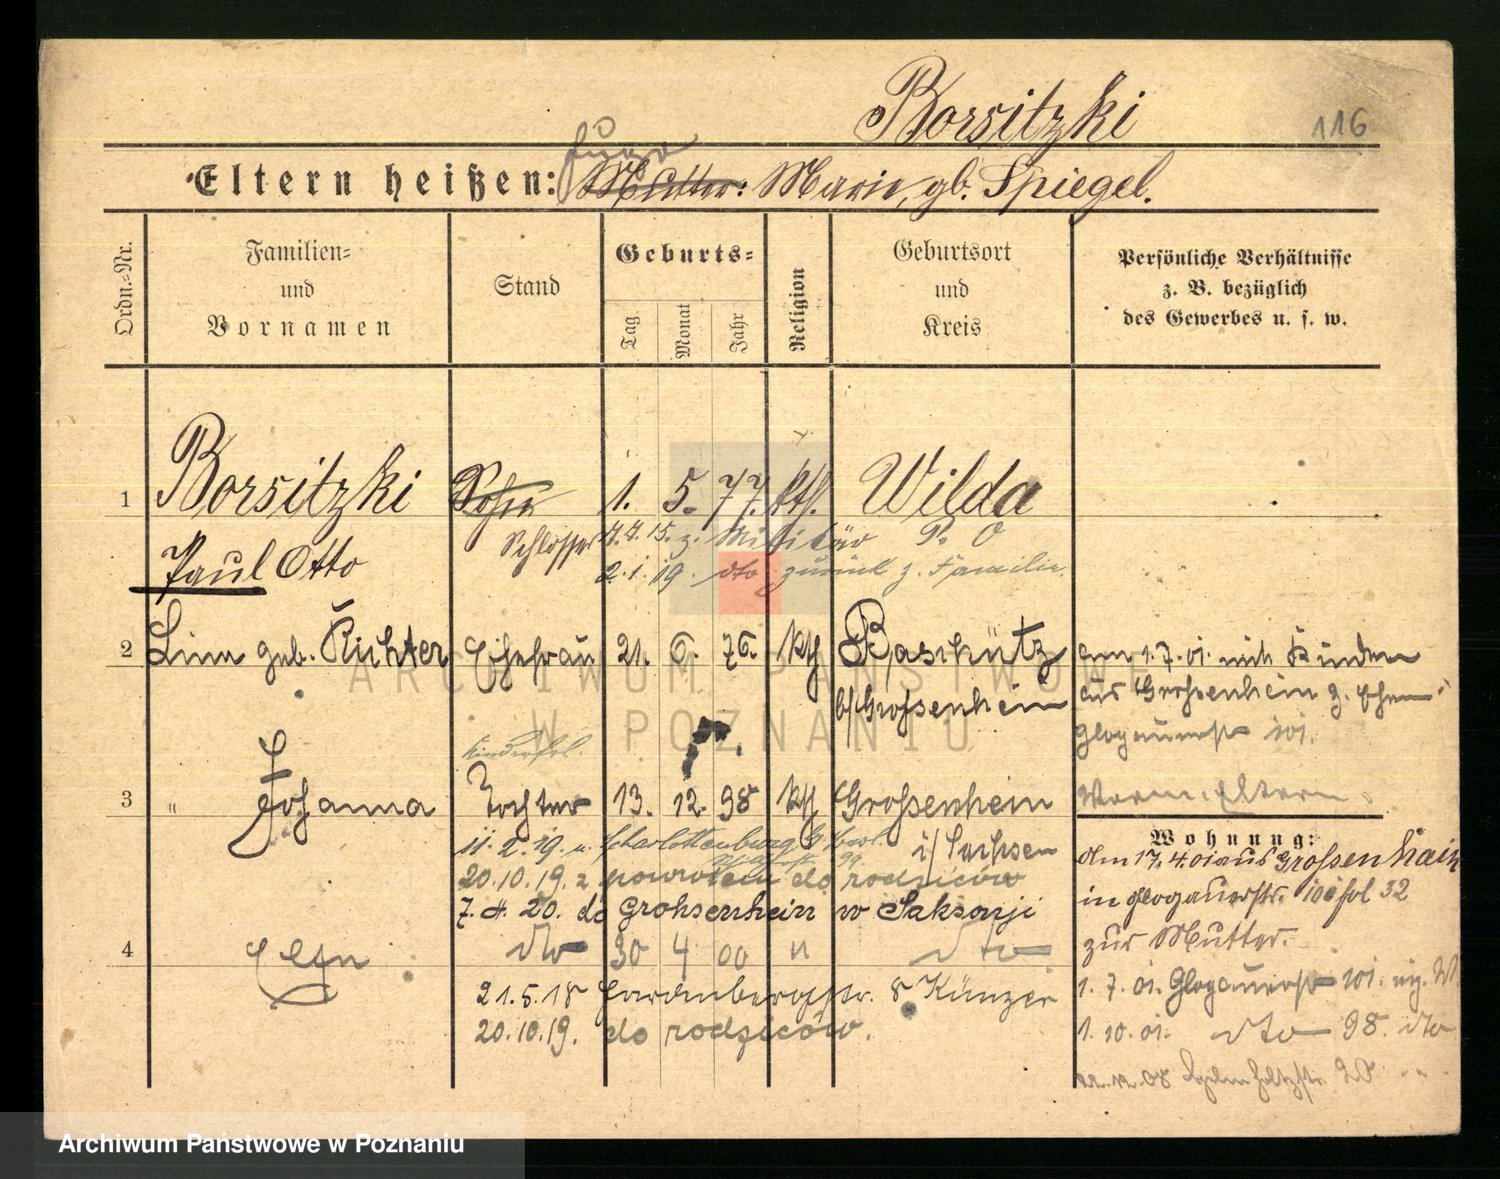 Borsitzki
116
Eltern heißen: Mutter: Marie, gb. Spiegel.
Ordn.-Nr.
Familien-
und
Vornamen
Stand
Geburts-
Tag
Monat
Jahr
Religion
Geburtsort
und
Kreis
Persönliche Verhältnisse
z. B. bezüglich
des Gewerbes u. s. w.
1 Borsitzki 1. 5. 77. kth. Wilda
Paul Otto Schlosser 4.4.15. z. Militär P. O
2.1.19. dto zurück z. Familie.
2 Linn geb. Richter Ehefrau 21. 6. 76. kth Baskütz am 1.7.01. mit Kindern
b/Grossenhein aus Grossenhein z. Ehem.
Glogauerstr 101.
3 " Johanna Tochter 13. 12. 98 kth Grossenhein
i/Sachsen
11.2.19. n. Charlottenburg
20.10.19. z powrotem do rodziców
7.4.20. do Grohsenhein w Saksonji
4 dto 30 4 00 " dto
21.5.18 8 Künzer
20.10.19. do rodziców.
Wohnung:
Am 17.4.01 aus Grossenhain
in Glogauerstr. 101 fol 32
zur Mutter.
1.7.01. Glogauerstr 101.
1.10.01. dto 98. dto
ARCHIWUM PAŃSTWOWE
W POZNANIU
Archiwum Państwowe w Poznaniu